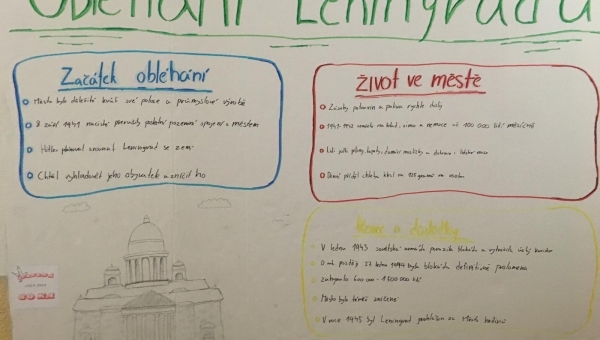 Obléhání Leningradu
Začátek obléhání
Město bylo důležité kvůli své poloze a průmyslové výrobě
V září 1941 nacisté přerušily poslední pozemní spojení s městem
Hitler plánoval srovnat Leningrad se zemí
Chtěl vyhladovět jeho obyvatele a zničit ho
ŽIVOT VE MĚSTĚ
Zásoby potravin a paliva rychle došly
1941-1942 zemřelo na hlad, zimu a nemoce až 100 000 lidí měsíčně
Lidi jedli
Denní příděl chleba klesl na 125 gramů na osobu
Konec a dodatky
V lednu 1943 sovětská armáda prorazila blokádu a vytvořila úzký koridor
O rok později 27. ledna 1944 byla blokáda definitivně prolomena
Zahynulo 600 000 - 1 500 000 lidí
Město bylo téměř zničené
V roce 1945 byl Leningrad prohlášen za Město hrdinů